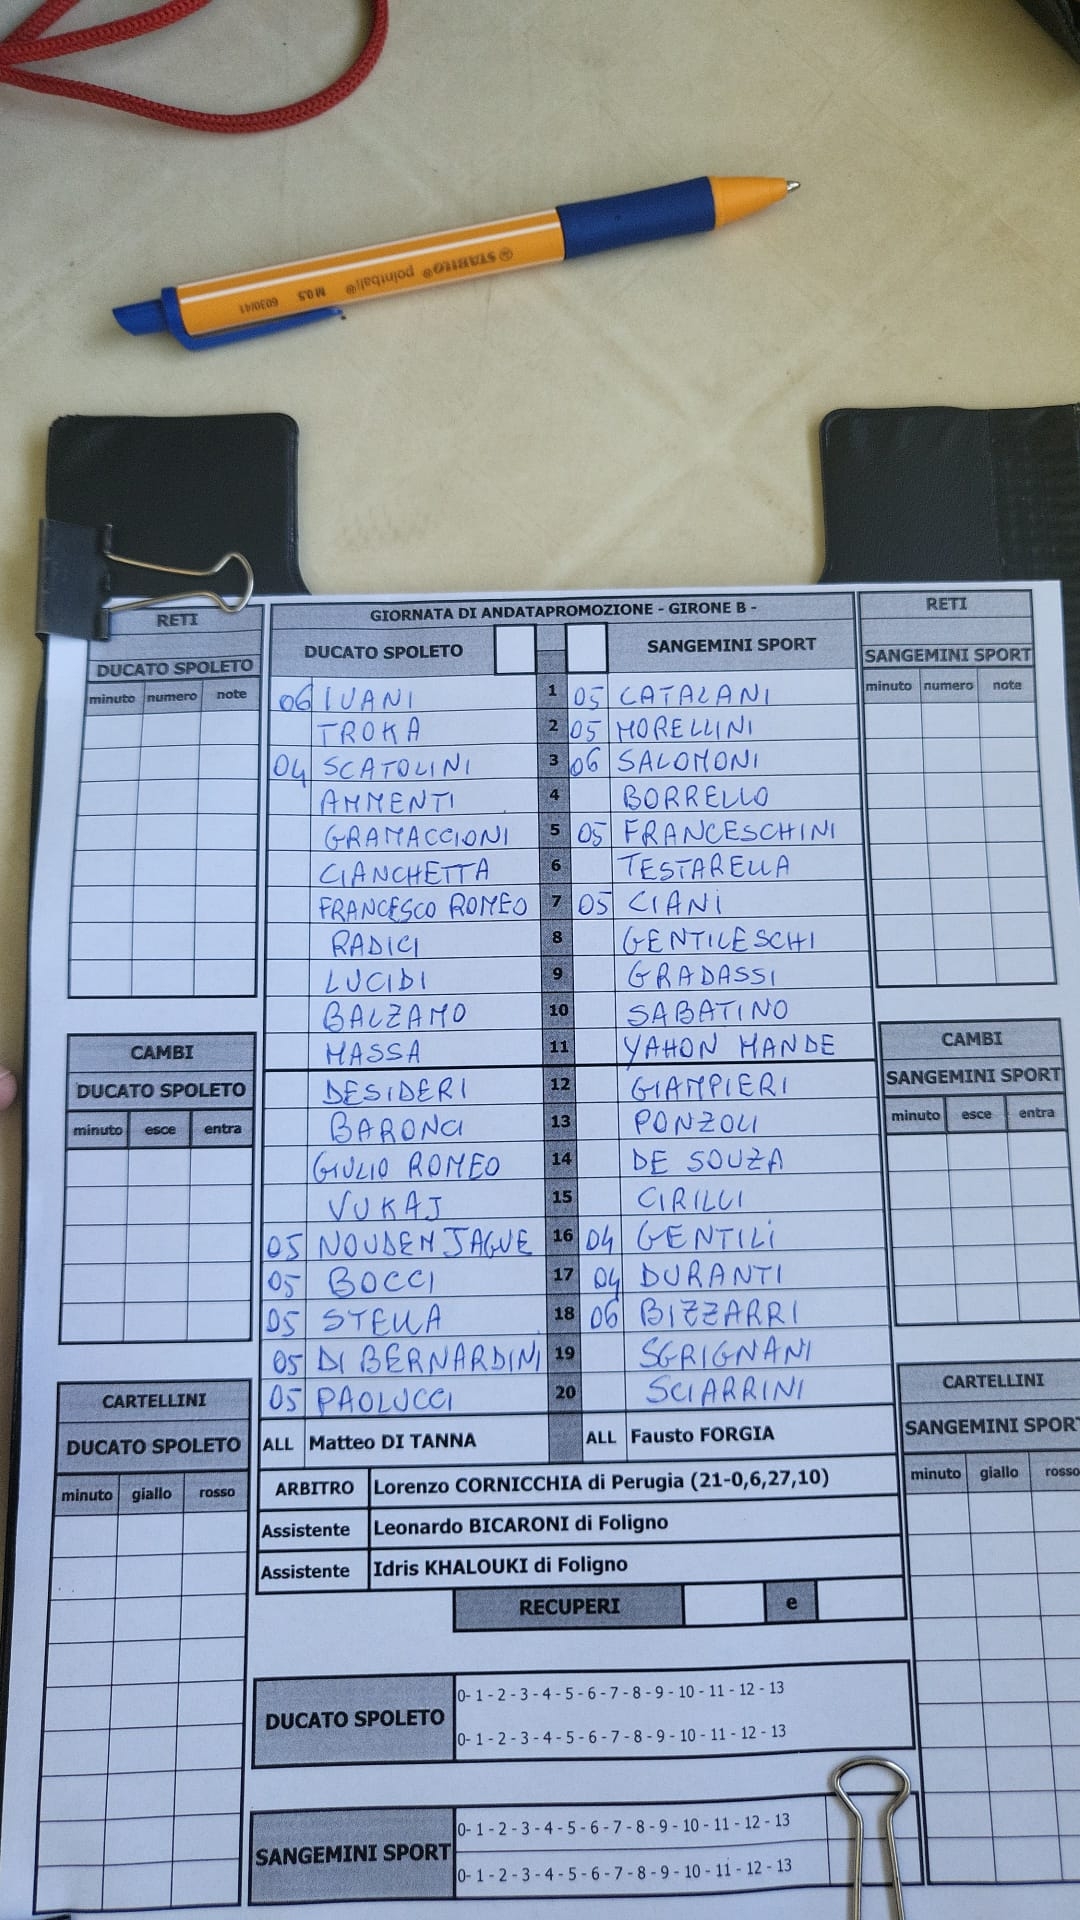 STABILO® pointball® M 0,5 6030/41
GIORNATA DI ANDATAPROMOZIONE - GIRONE B -
RETI
DUCATO SPOLETO
minuto numero note
DUCATO SPOLETO SANGEMINI SPORT
RETI
SANGEMINI SPORT
minuto numero note
06 IVANI 1 05 CATALANI
TROKA 2 05 MORELLINI
04 SCATOLINI 3 06 SALOMONI
AMMENTI 4 BORRELLO
GRAMACCIONI 5 05 FRANCESCHINI
CIANCHETTA 6 TESTARELLA
FRANCESCO ROMEO 7 05 CIANI
RADICI 8 GENTILESCHI
LUCIDI 9 GRADASSI
BALZAMO 10 SABATINO
MASSA 11 YAHON MANDE
DESIDERI 12 GIAMPIERI
BARONCI 13 PONZOLI
GIULIO ROMEO 14 DE SOUZA
VUKAJ 15 CIRILLI
05 NOUDEM JAGUE 16 04 GENTILI
05 BOCCI 17 04 DURANTI
05 STELLA 18 06 BIZZARRI
05 DI BERNARDINI 19 SGRIGNANI
05 PAOLUCCI 20 SCIARRINI
ALL Matteo DI TANNA ALL Fausto FORGIA
ARBITRO Lorenzo CORNICCHIA di Perugia (21-0,6,27,10)
Assistente Leonardo BICARONI di Foligno
Assistente Idris KHALOUKI di Foligno
RECUPERI e
CAMBI
DUCATO SPOLETO
minuto esce entra
CAMBI
SANGEMINI SPORT
minuto esce entra
CARTELLINI
DUCATO SPOLETO
minuto giallo rosso
CARTELLINI
SANGEMINI SPOR
minuto giallo rosso
DUCATO SPOLETO
0- 1 - 2 - 3 - 4 - 5 - 6 - 7 - 8 - 9 - 10 - 11 - 12 - 13
0- 1 - 2 - 3 - 4 - 5 - 6 - 7 - 8 - 9 - 10 - 11 - 12 - 13
SANGEMINI SPORT
0- 1 - 2 - 3 - 4 - 5 - 6 - 7 - 8 - 9 - 10 - 11 - 12 - 13
0- 1 - 2 - 3 - 4 - 5 - 6 - 7 - 8 - 9 - 10 - 11 - 12 - 13